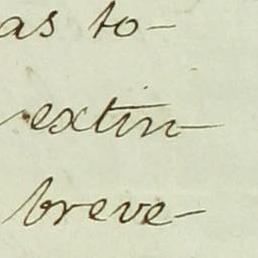 as to-
extin-
breve-